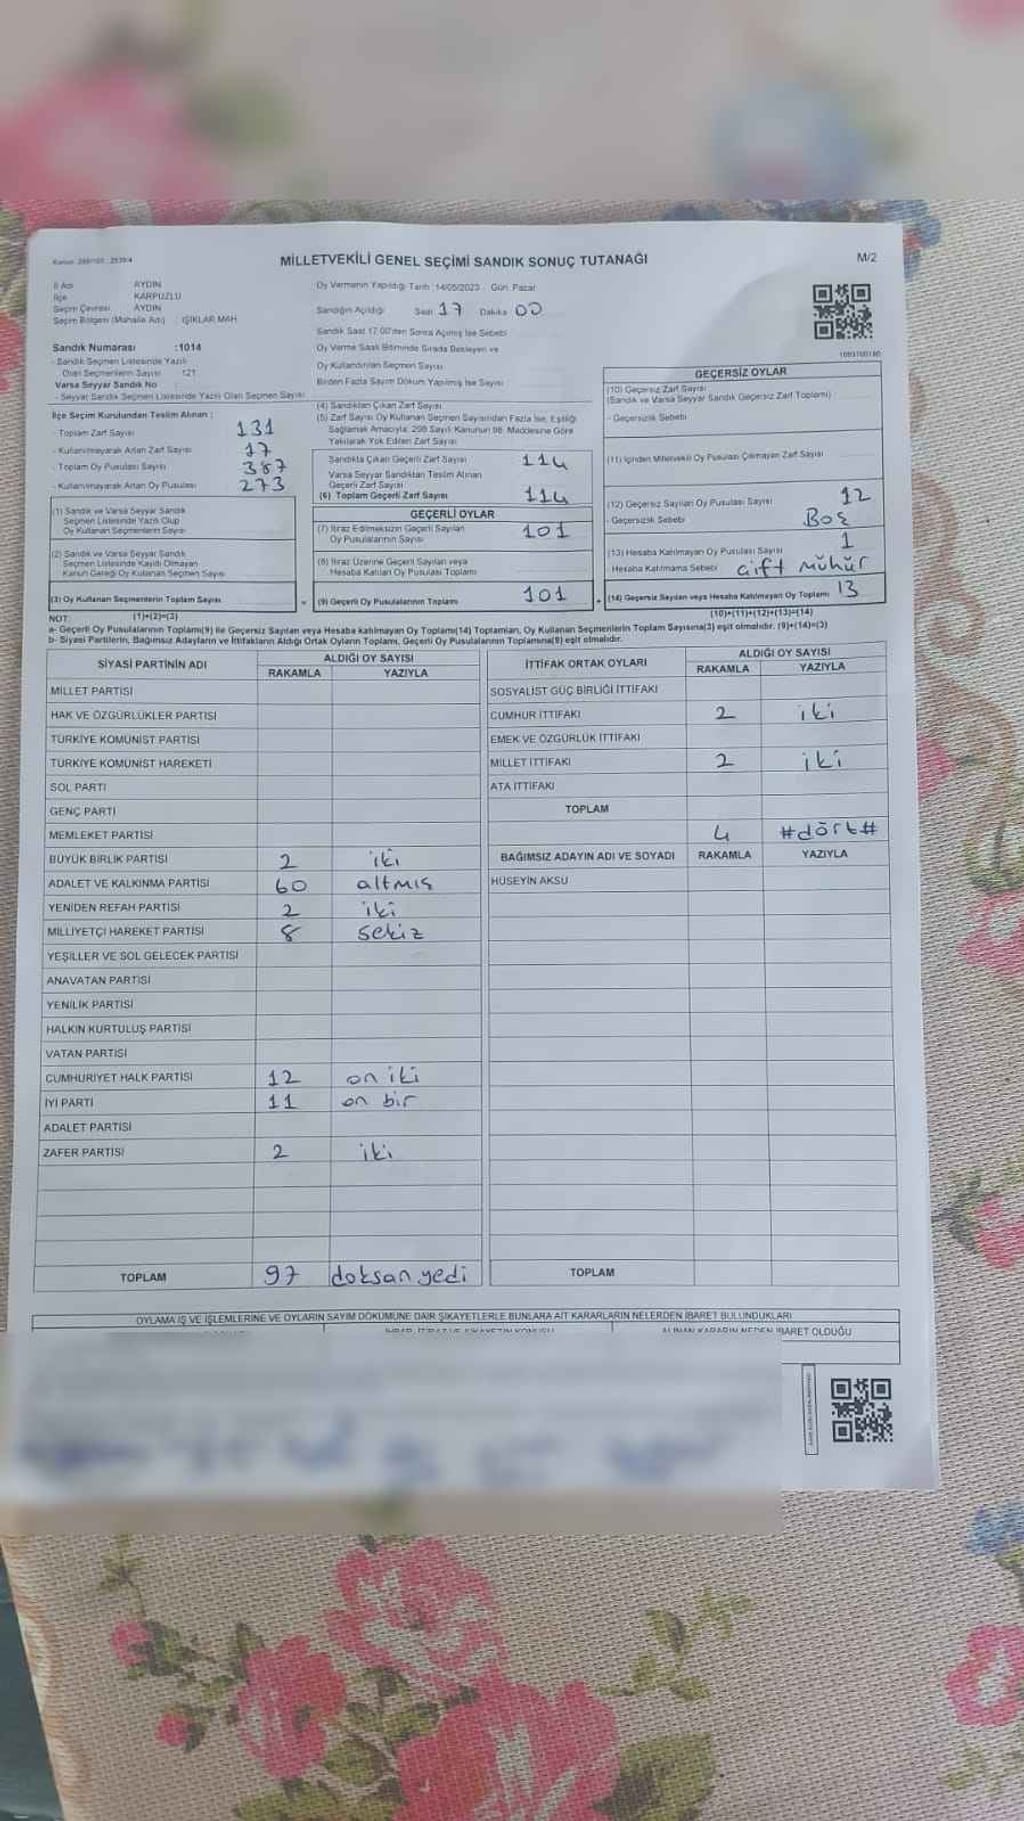 MİLLETVEKİLİ GENEL SEÇİMİ SANDIK SONUÇ TUTANAĞI
M/2
İl Adı AYDIN
İlçe KARPUZLU
Seçim Çevresi AYDIN
Seçim Bölgesi (Mahalle Adı) : IŞIKLAR MAH
Sandık Numarası :1014
- Sandık Seçmen Listesinde Yazılı
Olan Seçmenlerin Sayısı :121
Varsa Seyyar Sandık No
- Seyyar Sandık Seçmen Listesinde Yazılı Olan Seçmen Sayısı
İlçe Seçim Kurulundan Teslim Alınan :
- Toplam Zarf Sayısı 131
- Kullanılmayarak Artan Zarf Sayısı 17
- Toplam Oy Pusulası Sayısı 387
- Kullanılmayarak Artan Oy Pusulası 273
(1) Sandık ve Varsa Seyyar Sandık
Seçmen Listesinde Yazılı Olup
Oy Kullanan Seçmenlerin Sayısı
(2) Sandık ve Varsa Seyyar Sandık
Seçmen Listesinde Kayıtlı Olmayan
Kanun Gereği Oy Kullanan Seçmen Sayısı
(3) Oy Kullanan Seçmenlerin Toplam Sayısı
Oy Vermenin Yapıldığı Tarih :14/05/2023 - Gün: Pazar
Sandığın Açıldığı Saat 17 Dakika 00
Sandık Saat 17.00'den Sonra Açılmış İse Sebebi
Oy Verme Saati Bitiminde Sırada Bekleyen ve
Oy Kullandırılan Seçmen Sayısı
Birden Fazla Sayım Döküm Yapılmış İse Sayısı
(4) Sandıktan Çıkan Zarf Sayısı
(5) Zarf Sayısı Oy Kullanan Seçmen Sayısından Fazla İse, Eşitliği
Sağlamak Amacıyla, 298 Sayılı Kanunun 98. Maddesine Göre
Yakılarak Yok Edilen Zarf Sayısı
Sandıkta Çıkan Geçerli Zarf Sayısı 114
Varsa Seyyar Sandıktan Teslim Alınan
Geçerli Zarf Sayısı
(6) Toplam Geçerli Zarf Sayısı 114
GEÇERLİ OYLAR
(7) İtiraz Edilmeksizin Geçerli Sayılan
Oy Pusulalarının Sayısı 101
(8) İtiraz Üzerine Geçerli Sayılan veya
Hesaba Katılan Oy Pusulası Toplamı
(9) Geçerli Oy Pusulalarının Toplamı 101
GEÇERSİZ OYLAR
(10) Geçersiz Zarf Sayısı
(Sandık ve Varsa Seyyar Sandık Geçersiz Zarf Toplamı)
- Geçersizlik Sebebi
(11) İçinden Milletvekili Oy Pusulası Çıkmayan Zarf Sayısı
(12) Geçersiz Sayılan Oy Pusulası Sayısı 12
- Geçersizlik Sebebi Boş
(13) Hesaba Katılmayan Oy Pusulası Sayısı 1
Hesaba Katılmama Sebebi çift mühür
(14) Geçersiz Sayılan veya Hesaba Katılmayan Oy Toplamı 13
NOT: (1)+(2)=(3)
(10)+(11)+(12)+(13)=(14)
a- Geçerli Oy Pusulalarının Toplamı(9) ile Geçersiz Sayılan veya Hesaba katılmayan Oy Toplamı(14) Toplamları, Oy Kullanan Seçmenlerin Toplam Sayısına(3) eşit olmalıdır. (9)+(14)=(3)
b- Siyasi Partilerin, Bağımsız Adayların ve İttifakların Aldığı Ortak Oyların Toplamı, Geçerli Oy Pusulalarının Toplamına(9) eşit olmalıdır.
SİYASİ PARTİNİN ADI ALDIĞI OY SAYISI
RAKAMLA YAZIYLA
MİLLET PARTİSİ
HAK VE ÖZGÜRLÜKLER PARTİSİ
TÜRKİYE KOMÜNİST PARTİSİ
TÜRKİYE KOMÜNİST HAREKETİ
SOL PARTİ
GENÇ PARTİ
MEMLEKET PARTİSİ
BÜYÜK BİRLİK PARTİSİ 2 iki
ADALET VE KALKINMA PARTİSİ 60 altmış
YENİDEN REFAH PARTİSİ 2 iki
MİLLİYETÇİ HAREKET PARTİSİ 8 sekiz
YEŞİLLER VE SOL GELECEK PARTİSİ
ANAVATAN PARTİSİ
YENİLİK PARTİSİ
HALKIN KURTULUŞ PARTİSİ
VATAN PARTİSİ
CUMHURİYET HALK PARTİSİ 12 on iki
İYİ PARTİ 11 on bir
ADALET PARTİSİ
ZAFER PARTİSİ 2 iki
TOPLAM 97 doksan yedi
İTTİFAK ORTAK OYLARI ALDIĞI OY SAYISI
RAKAMLA YAZIYLA
SOSYALİST GÜÇ BİRLİĞİ İTTİFAKI
CUMHUR İTTİFAKI 2 iki
EMEK VE ÖZGÜRLÜK İTTİFAKI
MİLLET İTTİFAKI 2 iki
ATA İTTİFAKI
TOPLAM
4 #dört#
BAĞIMSIZ ADAYIN ADI VE SOYADI RAKAMLA YAZIYLA
HÜSEYİN AKSU
TOPLAM
OYLAMA İŞ VE İŞLEMLERİNE VE OYLARIN SAYIM DÖKÜMÜNE DAİR ŞİKAYETLERLE BUNLARA AİT KARARLARIN NELERDEN İBARET BULUNDUKLARI
ALINAN KARARIN NEDEN İBARET OLDUĞU